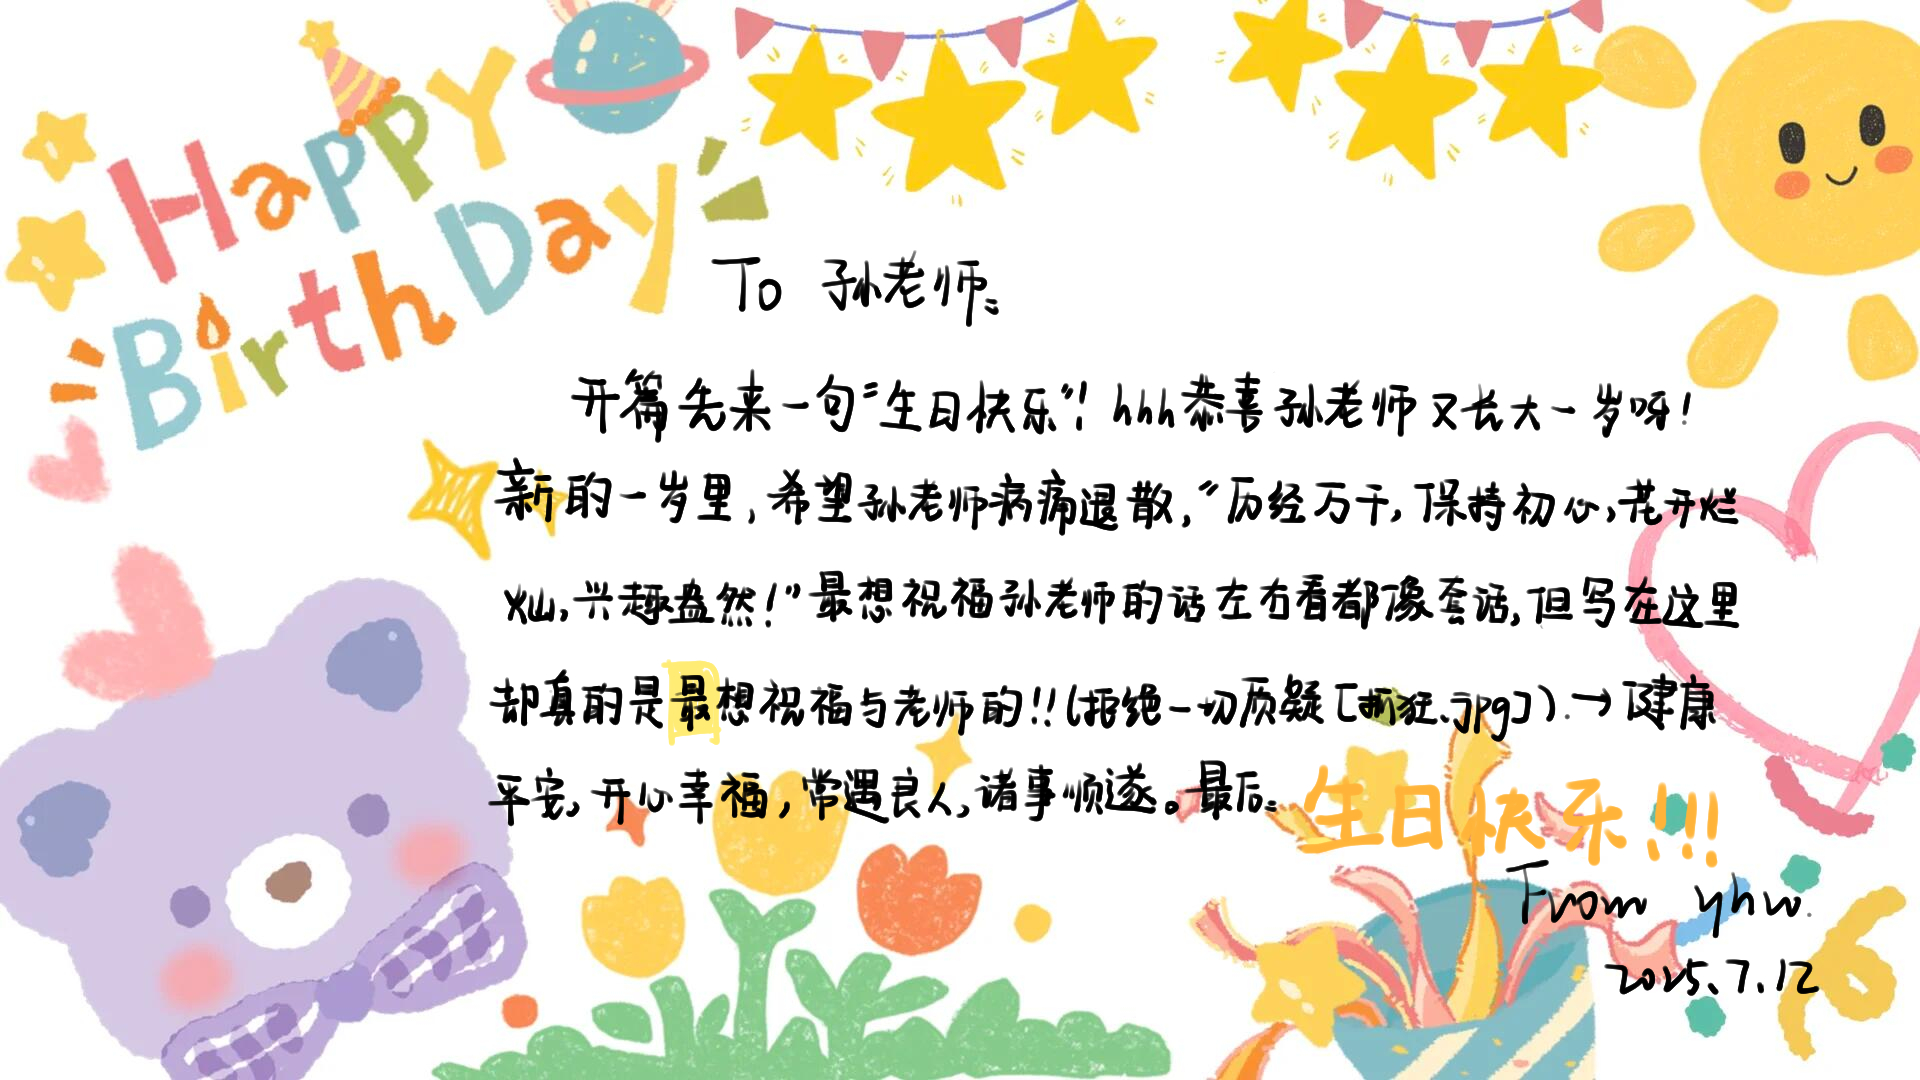 Happy
Birth Day
To 孙老师:
开篇先来一句“生日快乐”！hhh恭喜孙老师又长大一岁呀！
新的一岁里，希望孙老师病痛退散，“历经万千，保持初心，花开烂
灿，兴趣盎然！”最想祝福孙老师的话左右看都像套话，但写在这里
却真的是最想祝福与老师的！！（拒绝一切质疑[抓狂.jpg]）.→健康
平安，开心幸福，常遇良人，诸事顺遂。最后:生日快乐！！！
From yhw.
2025.7.12